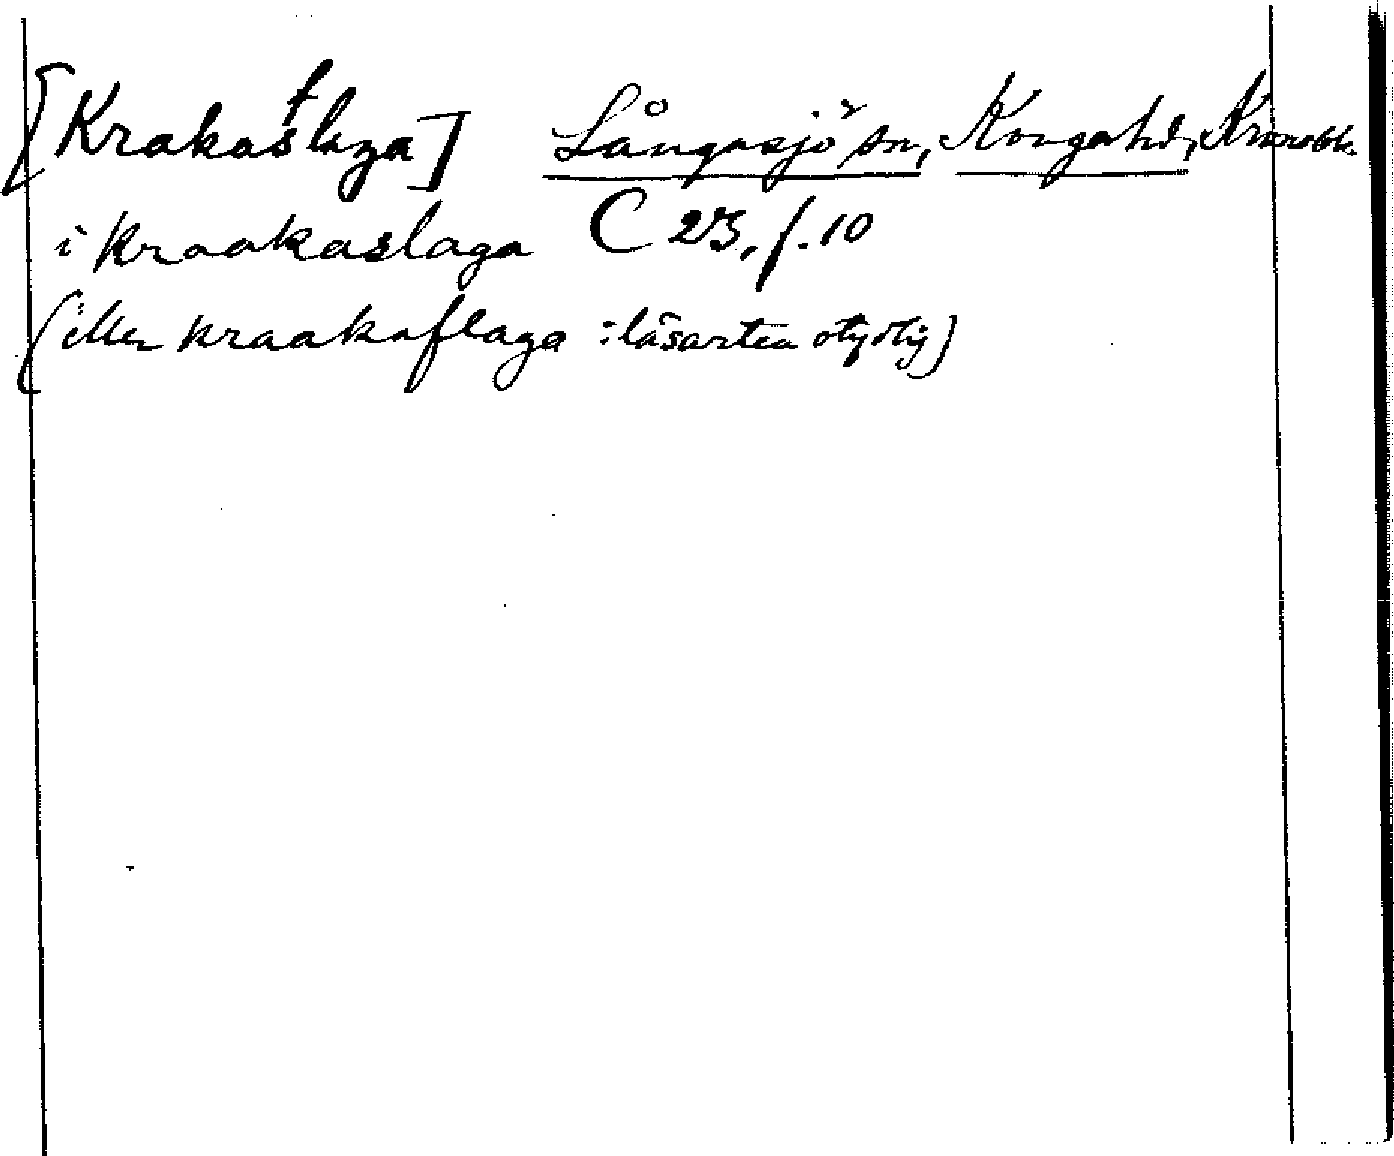 [Krakaslaga] Långasjö sn, Konga hd, Kronob.
f
i kraakaslaga C 23, f. 10
(eller kraakaflaga : läsarten otydlig)